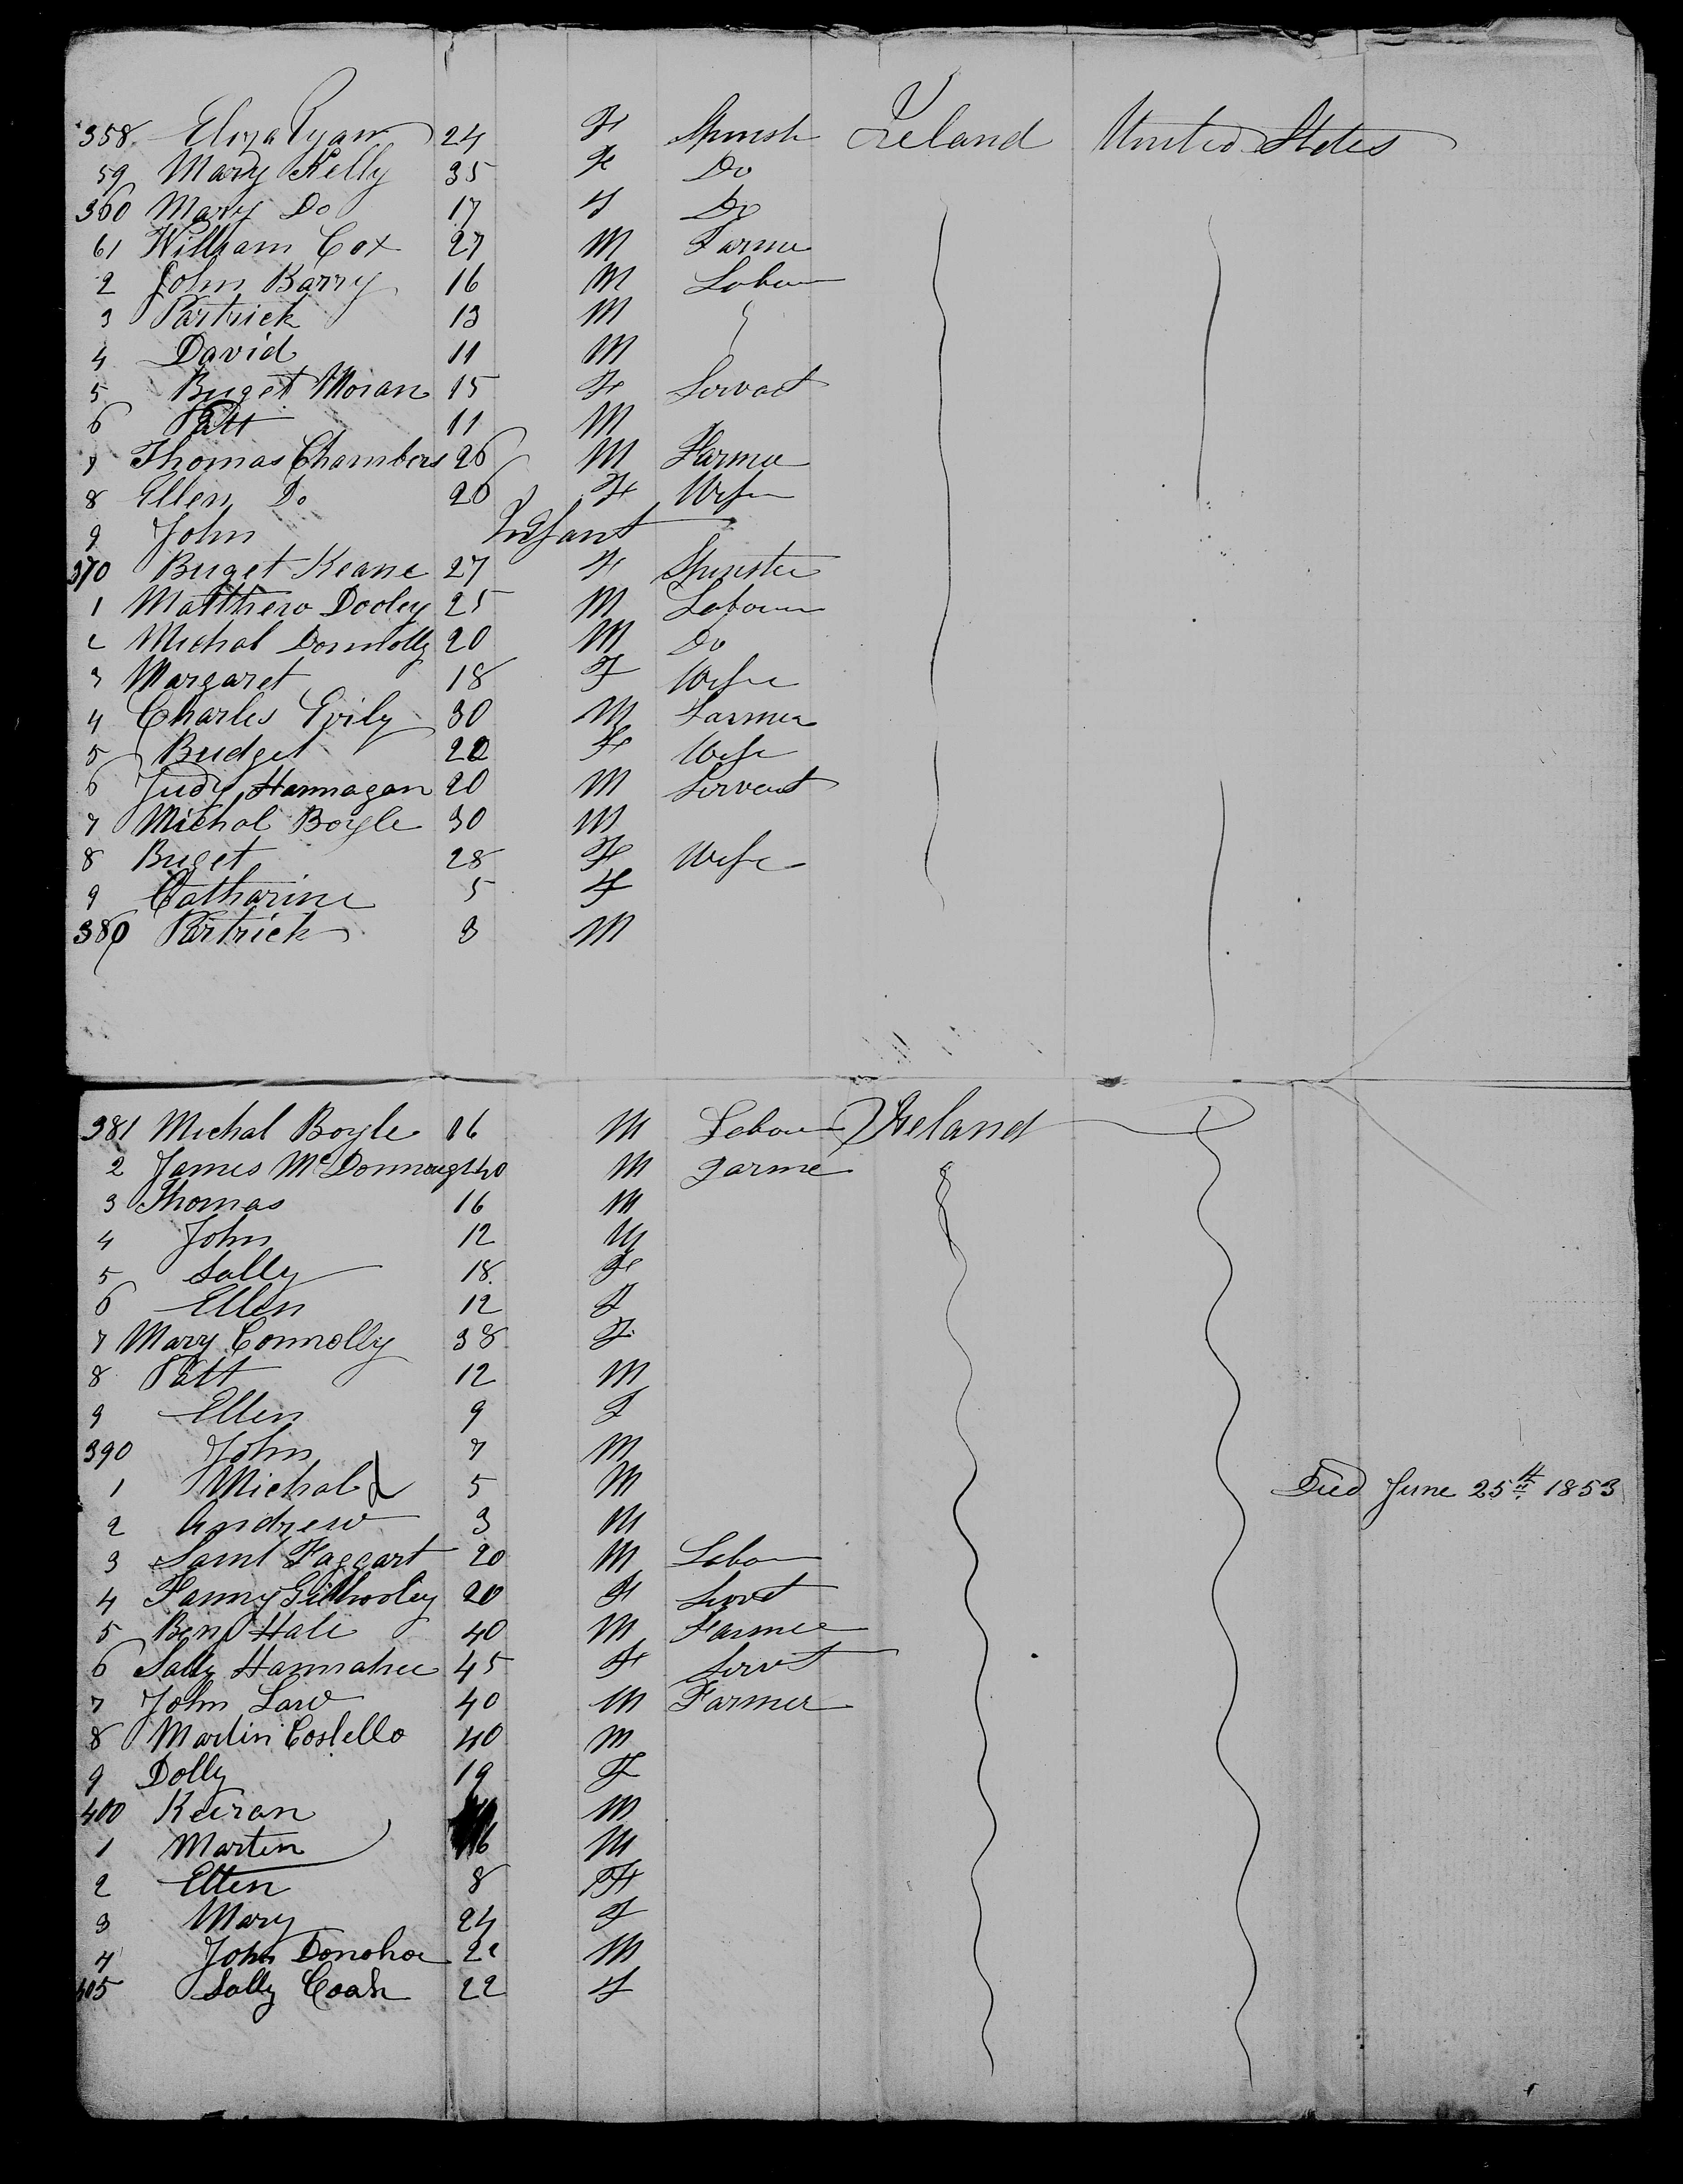 358 Eliza Ryan 24 F Spinstr Ireland United States
59 Mary Kelly 35 F Do
360 Mary Do 17 F Do
61 William Cox 27 M Farmer
2 John Barry 16 M Labour
3 Partrick 13 M
4 David 11 M
5 Briget Moran 15 F Servant
6 Patt 11 M
7 Thomas Chambers 26 M Farmer
8 Ellen Do 26 F Wife
9 John Infant
370 Briget Keane 27 F Spinster
1 Matthew Dooley 25 M Labour
2 Michal Donnolly 20 M Do
3 Margaret 18 F Wife
4 Charles 30 M Farmer
5 Bridget 22 F Wife
6 Judy Hannagan 20 M Servant
7 Michal Boyle 30 M
8 Briget 28 F Wife
9 Catharine 5 F
380 Partrick 3 M
381 Michal Boyle 16 M Labour Ireland
2 James McDonnaugh 40 M Farme
3 Thomas 16 M
4 John 12 M
5 Sally 18 F
6 Ellen 12 F
7 Mary Connolly 38 F
8 Patt 12 M
9 Ellen 9 F
390 John 7 M
1 Michal 5 M Died June 25th 1853
2 Andrew 3 M
3 Saml Faggart 20 M Labou
4 Fanny Gilhooley 20 F Servt
5 Benj Hale 40 M Farmer
6 Sally Hannahee 45 F Servt
7 John Law 40 M Farmer
8 Martin Costello 40 M
9 Dolly 19 F
400 Keiran M
1 Martin 16 M
2 Ellen 8 F
3 Mary 24 F
4 John Donohoe M
405 Sally 22 F